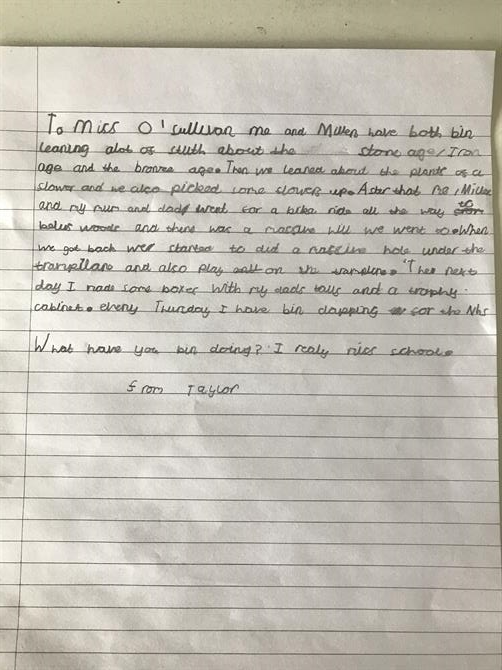 To Miss O'sullivan me and Millen have both bin
leaning alot of stuth about the stone age, Iron
age and the bronze age. Then we leaned about the plants of a
flower and we also picked some flowers up. After that Me, Millen
and my mum and dad went for a bike ride all the way to
woods and there was a massive hill we went to. When
we got back we started to did a massive hole under the
and also play on the. Then next
day I made some boxes with my dads tools and a trophy
cabinet. every Thursday I have bin clapping for the Nhs
What have you bin doing? I realy miss school.
from Taylor